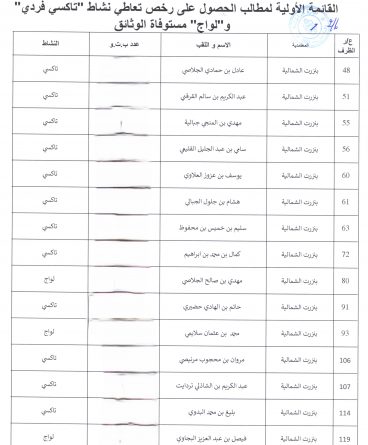 القائمة الأولية لمطالب الحصول على رخص تعاطي نشاط "تاكسي فردي"
و"لواج" مستوفاة الوثائق
ع/ر الظرف المعتمدية الاسم و اللقب عدد ب.ت.و النشاط
48 بنزرت الشمالية عادل بن حمادي الجلاصي تاكسي
51 بنزرت الشمالية عبد الكريم بن سالم القرفي تاكسي
55 بنزرت الشمالية مهدي بن المنجي جبالية تاكسي
56 بنزرت الشمالية سامي بن عبد الجليل القليعي تاكسي
60 بنزرت الشمالية يوسف بن عزوز العلاوي تاكسي
61 بنزرت الشمالية هشام بن جلول الجبالي تاكسي
63 بنزرت الشمالية سليم بن خميس بن محفوظ تاكسي
72 بنزرت الشمالية كمال بن محمد بن ابراهيم تاكسي
80 بنزرت الشمالية مهدي بن صالح الجلاصي لواج
91 بنزرت الشمالية حاتم بن الهادي خضيري تاكسي
93 بنزرت الشمالية محمد بن عثمان سلايمي لواج
106 بنزرت الشمالية مروان بن محجوب مرنيصي تاكسي
107 بنزرت الشمالية عبد الكريم بن الشاذلي تردايت تاكسي
114 بنزرت الشمالية بليغ بن محمد البدوي تاكسي
119 بنزرت الشمالية فيصل بن عبد العزيز البجاوي لواج